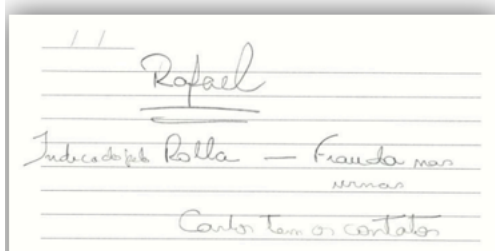 / /
Rafael
Indicado pelo Rolla — Fraude nas
urnas
Carlos tem os contatos